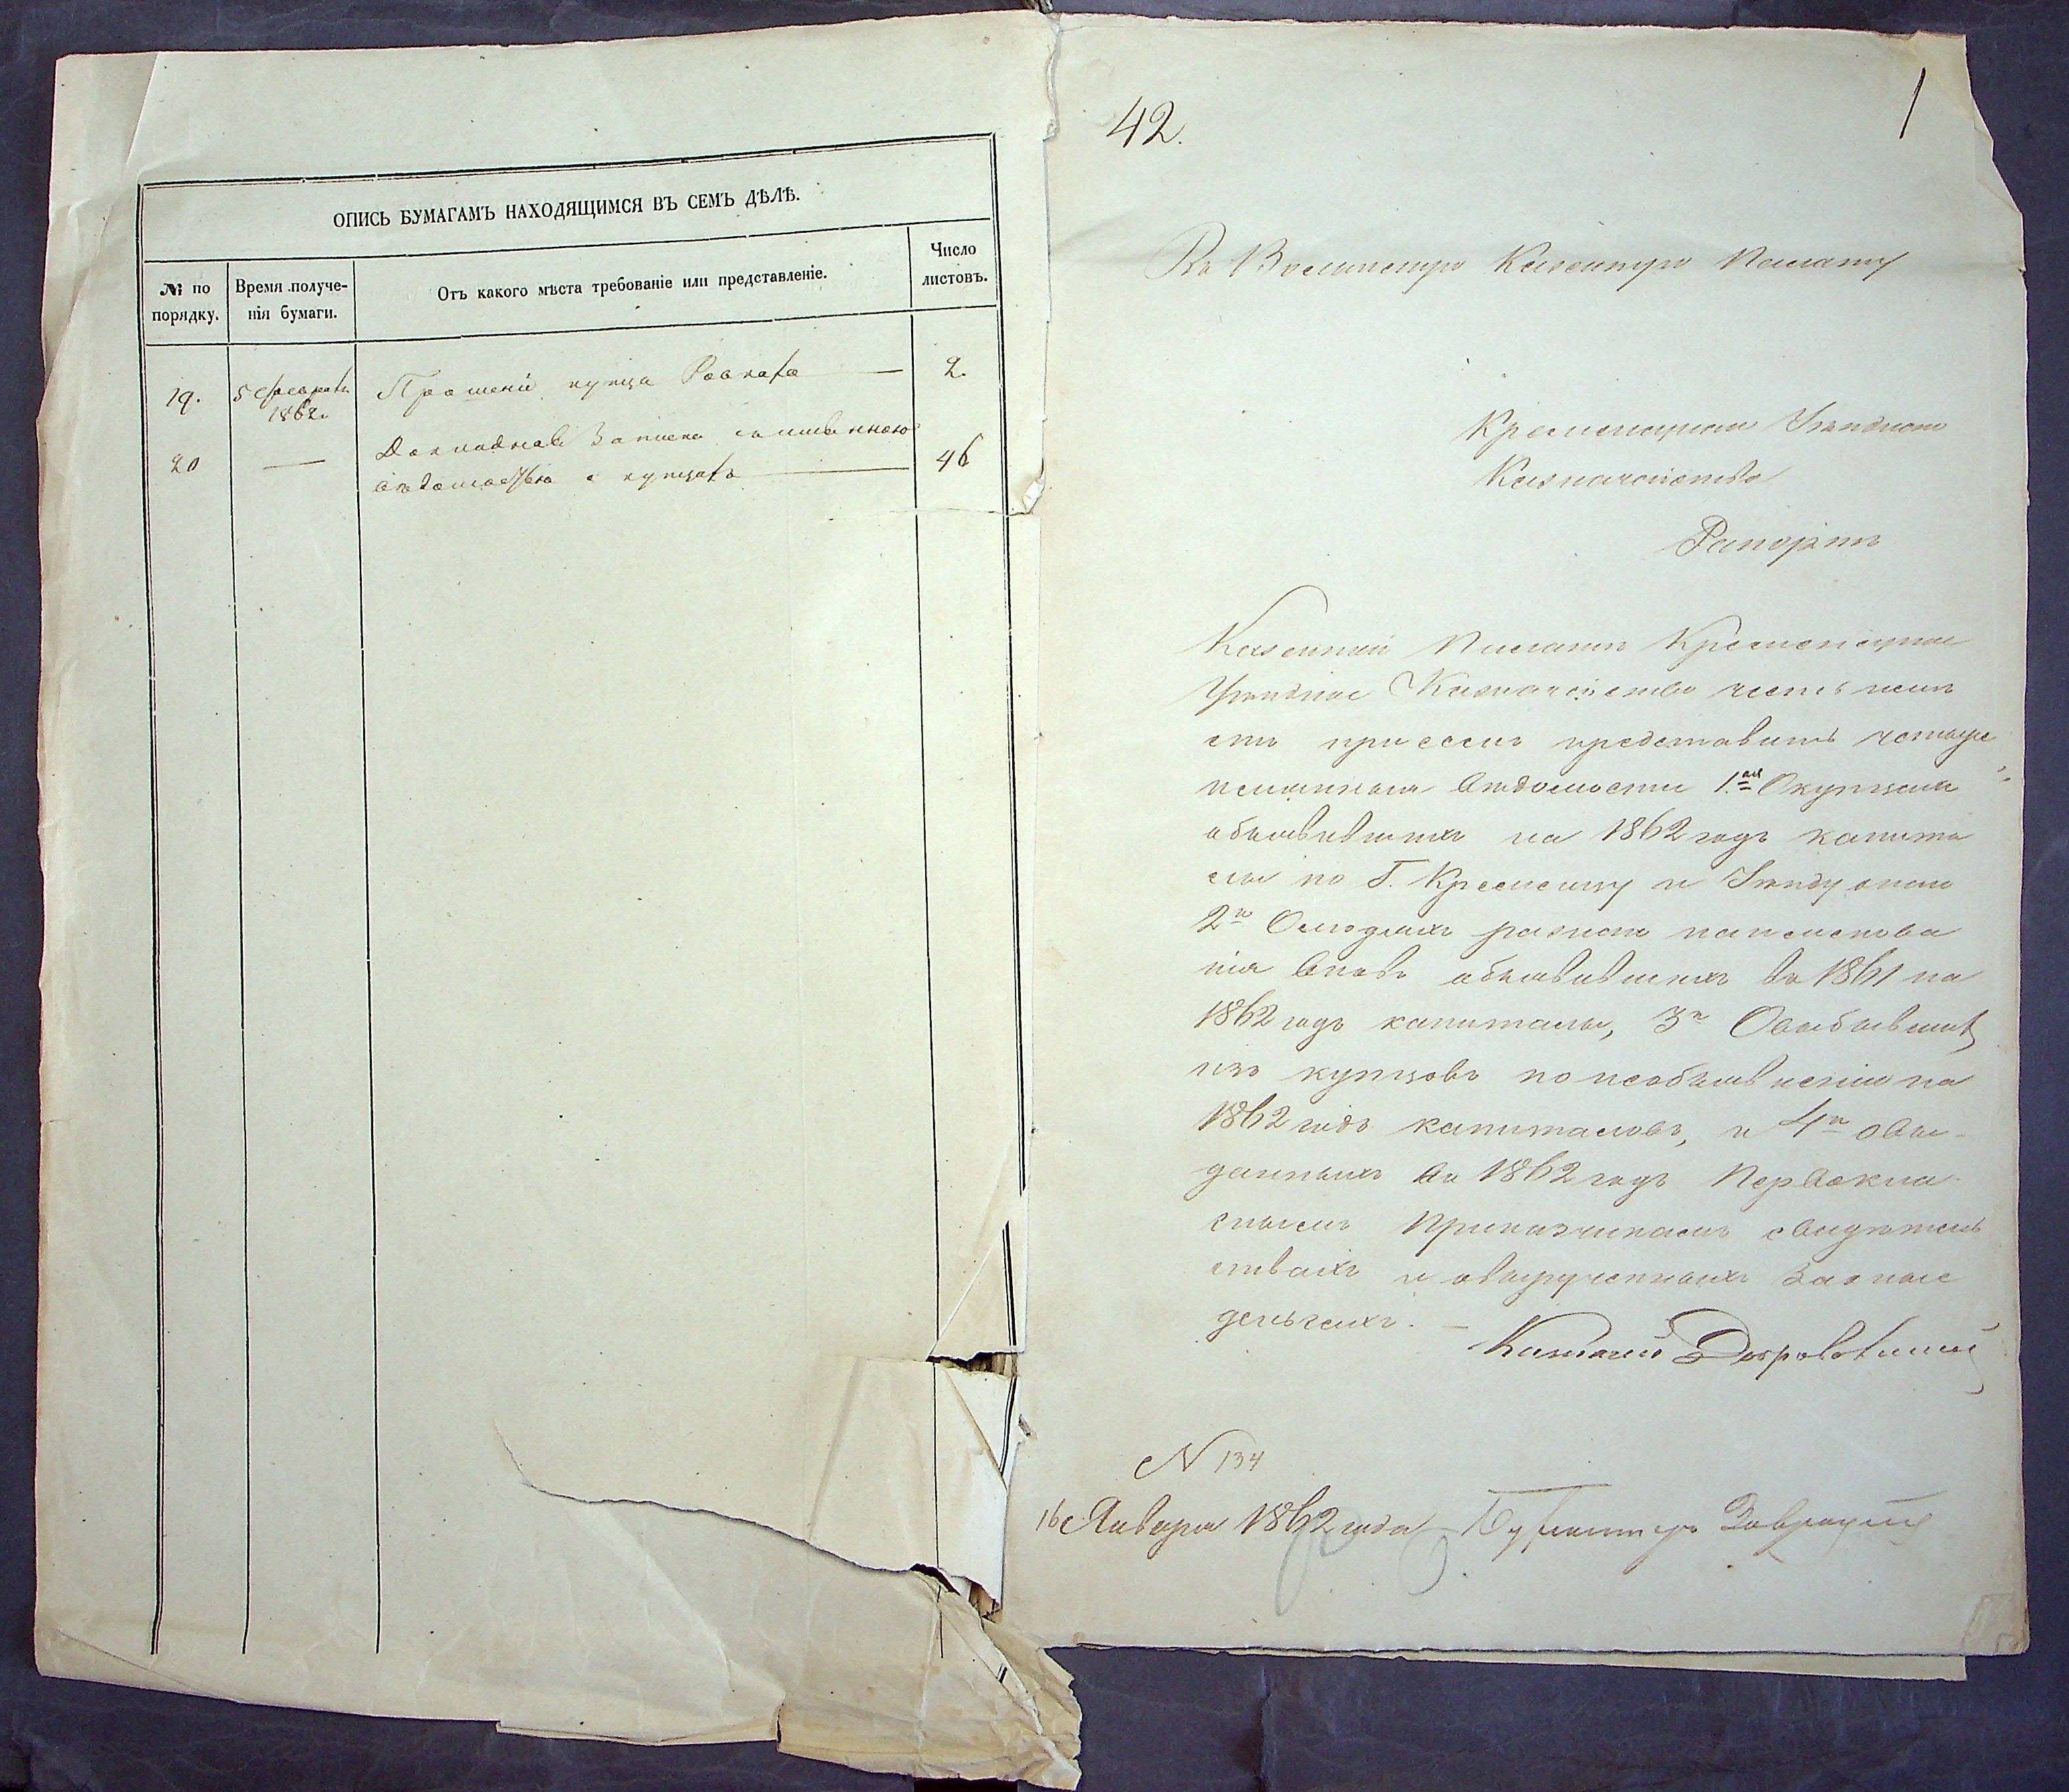 ОПИСЬ БУМАГАМЪ НАХОДЯЩИМСЯ ВЪ СЕМЪ ДѢЛѢ.
№ по порядку.
Время получе-
нія бумаги.
Отъ какого мѣста требованіе или представленіе.
Число
листовъ.
19.
5 февраля
1862.
Прошеніе купца
2.
20
Докладная Записка
вѣдомостью о купцахъ
46
42.
1
Въ Волынскую Казенную Палату
Кременецкаго Уѣзднаго
Казначейства
Рапортъ
Казенной Палатѣ Кременецкое
Уѣздное Казначейство честь имѣ
етъ при семъ представить четыре
именныхъ вѣдомости 1.ая О купцахъ
объявившихъ на 1862 годъ капита
лы по Г. Кременцу и Уѣзду онаго
2я О людяхъ разнаго наименова
нія вновь объявившихъ въ 1861 на
1862 годъ капиталы, 3я О выбывшихъ
изъ купцовъ по необъявленію на
1862 годъ капиталовъ, и 4я о вы-
данныхъ въ 1862 годъ Первокла
снымъ Приказчикамъ свидѣтель
ствахъ и о вырученныхъ за оные
деньгахъ. —
Казначей
N 134
16 Января 1862 года
Бухгалтеръ